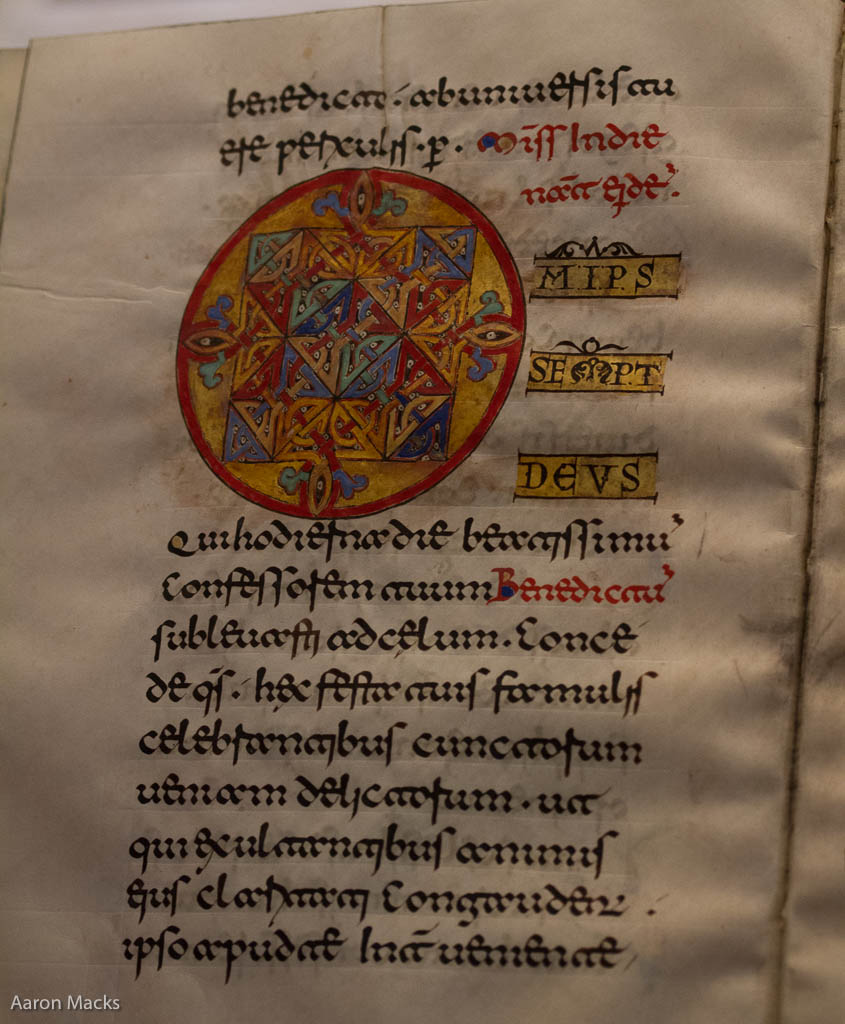 benedicat. ab uniuersis tu
ere periculis. p̄. Miss In die
nat̄ eidē.
MIPS
SEMPT
DEVS
Qui hodierna die beatissimū
Confessorem tuum Benedictū
subleuasti ad cęlum. Conce
de qs̄. hęc festa tuis famulis
celebrantibus cunctorum
ueniam delictorum. ut
qui exultantibus animis
eius claritati Congaudent.
ipso apud te Int̄ueniente